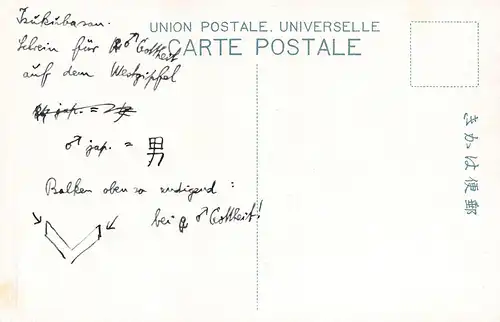 Tsukubasan.
Schrein für ♂ Gottheit
auf dem Westgipfel
jap. =
♂ jap. = 男
Balken oben so endigend :
bei ♂ Gottheit!
UNION POSTALE. UNIVERSELLE
CARTE POSTALE
きかは便郵